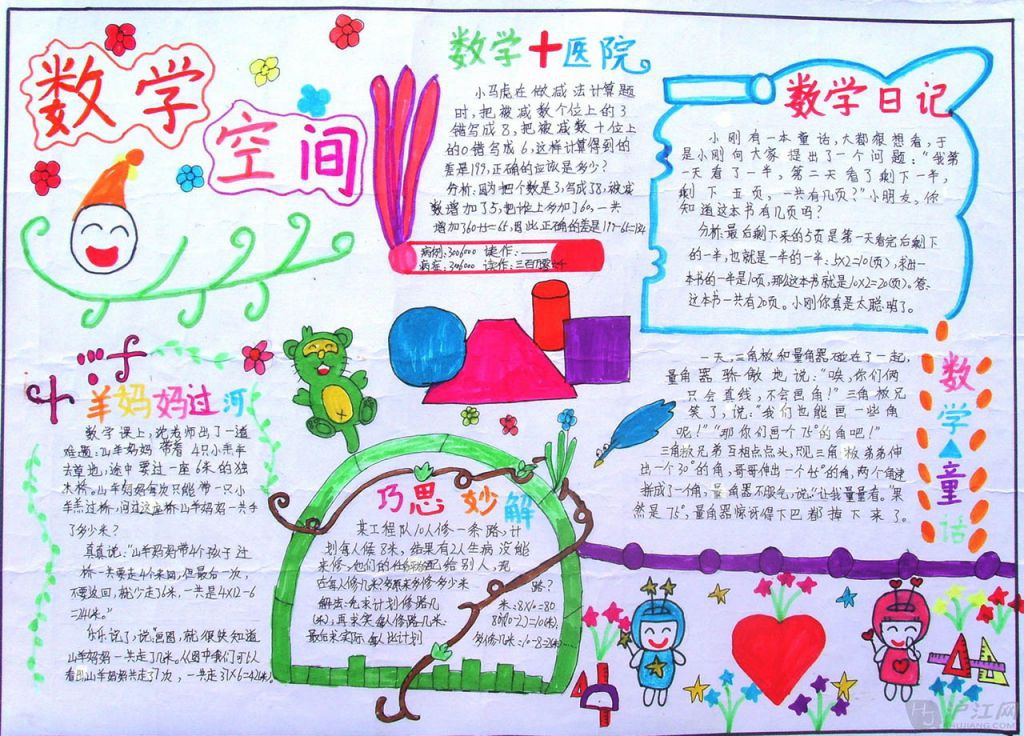 数学
空间
数学十医院
小马虎在做减法计算题
时,把被减数个位上的3
错写成8,把被减数十位上
的0错写成6,这样计算得到的
差是199,正确的应该是多少?
分析:因为把个数是3,写成38,被减
数增加了5,把十位上多加了60,一共
增加了60+5=65,因此正确的差是199-65=134
病例:3006000 读作:
病症:3006000 读作:三百万零六千
数学日记
小刚有一本童话,大都很想看,于
是小刚向大家提出了一个问题:“我第
一天看了一半,第二天看了剩下一半,
剩下五页,一共有几页?”小朋友,你
知道这本书有几页吗?
分析:最后剩下来的5页是第一天看完后剩下
的一半,也就是一半的一半:5×2=10(页),求出一
本书的一半是10页,那么这本书就是10×2=20(页)。答:
这本书一共有20页。小刚你真是太聪明了。
羊妈妈过河
数学课上,沈老师出了一道
难题:山羊妈妈带着4只小羔羊
去草地,途中要过一座6米的独
木桥。山羊妈妈每次只能带一只小
羊羔过桥,问过这座桥山羊妈妈一共走
了多少米?
真真说:“山羊妈妈带4个孩子过
桥一共要走4个来回,但最后一次,
不要返回,就少走了6米,一共是4×12-6
=42米。”
乐乐说了,说:“画图,就很快知道
山羊妈妈一共走了几米。从图中我们可以
看出山羊妈妈共走了7次,一共走了7×6=42(米)。
巧思妙解
某工程队10人修一条路,计
划每人修8米,结果有2人生病没能
来修,他们的任务分配给别人,现
在每人修几米?多原来多修多少米
路?
解法:先求计划修路几
米:8×10=80
(米),再求实每人修路几米:
80÷(10-2)=10(米),
最后求实际每人比计划
多修几米:10-8=2(米)
一天,三角板和量角器碰在了一起,
量角器骄傲地说:“唉,你们俩
只会直线,不会画角!”三角板兄
笑了,说:“我们也能画一些角
呢!”“那你们画个75°的角吧!”
三角板兄弟互相点点头,只见三角板弟弟伸
出一个30°的角,哥哥伸出一个45°的角,两个角迅
拼成了一个角,量角器不服气,说:“让我量量看。”果
然是75°,量角器惊讶得下巴都掉下来了。
数学童话
沪江网
HUJIANG.COM